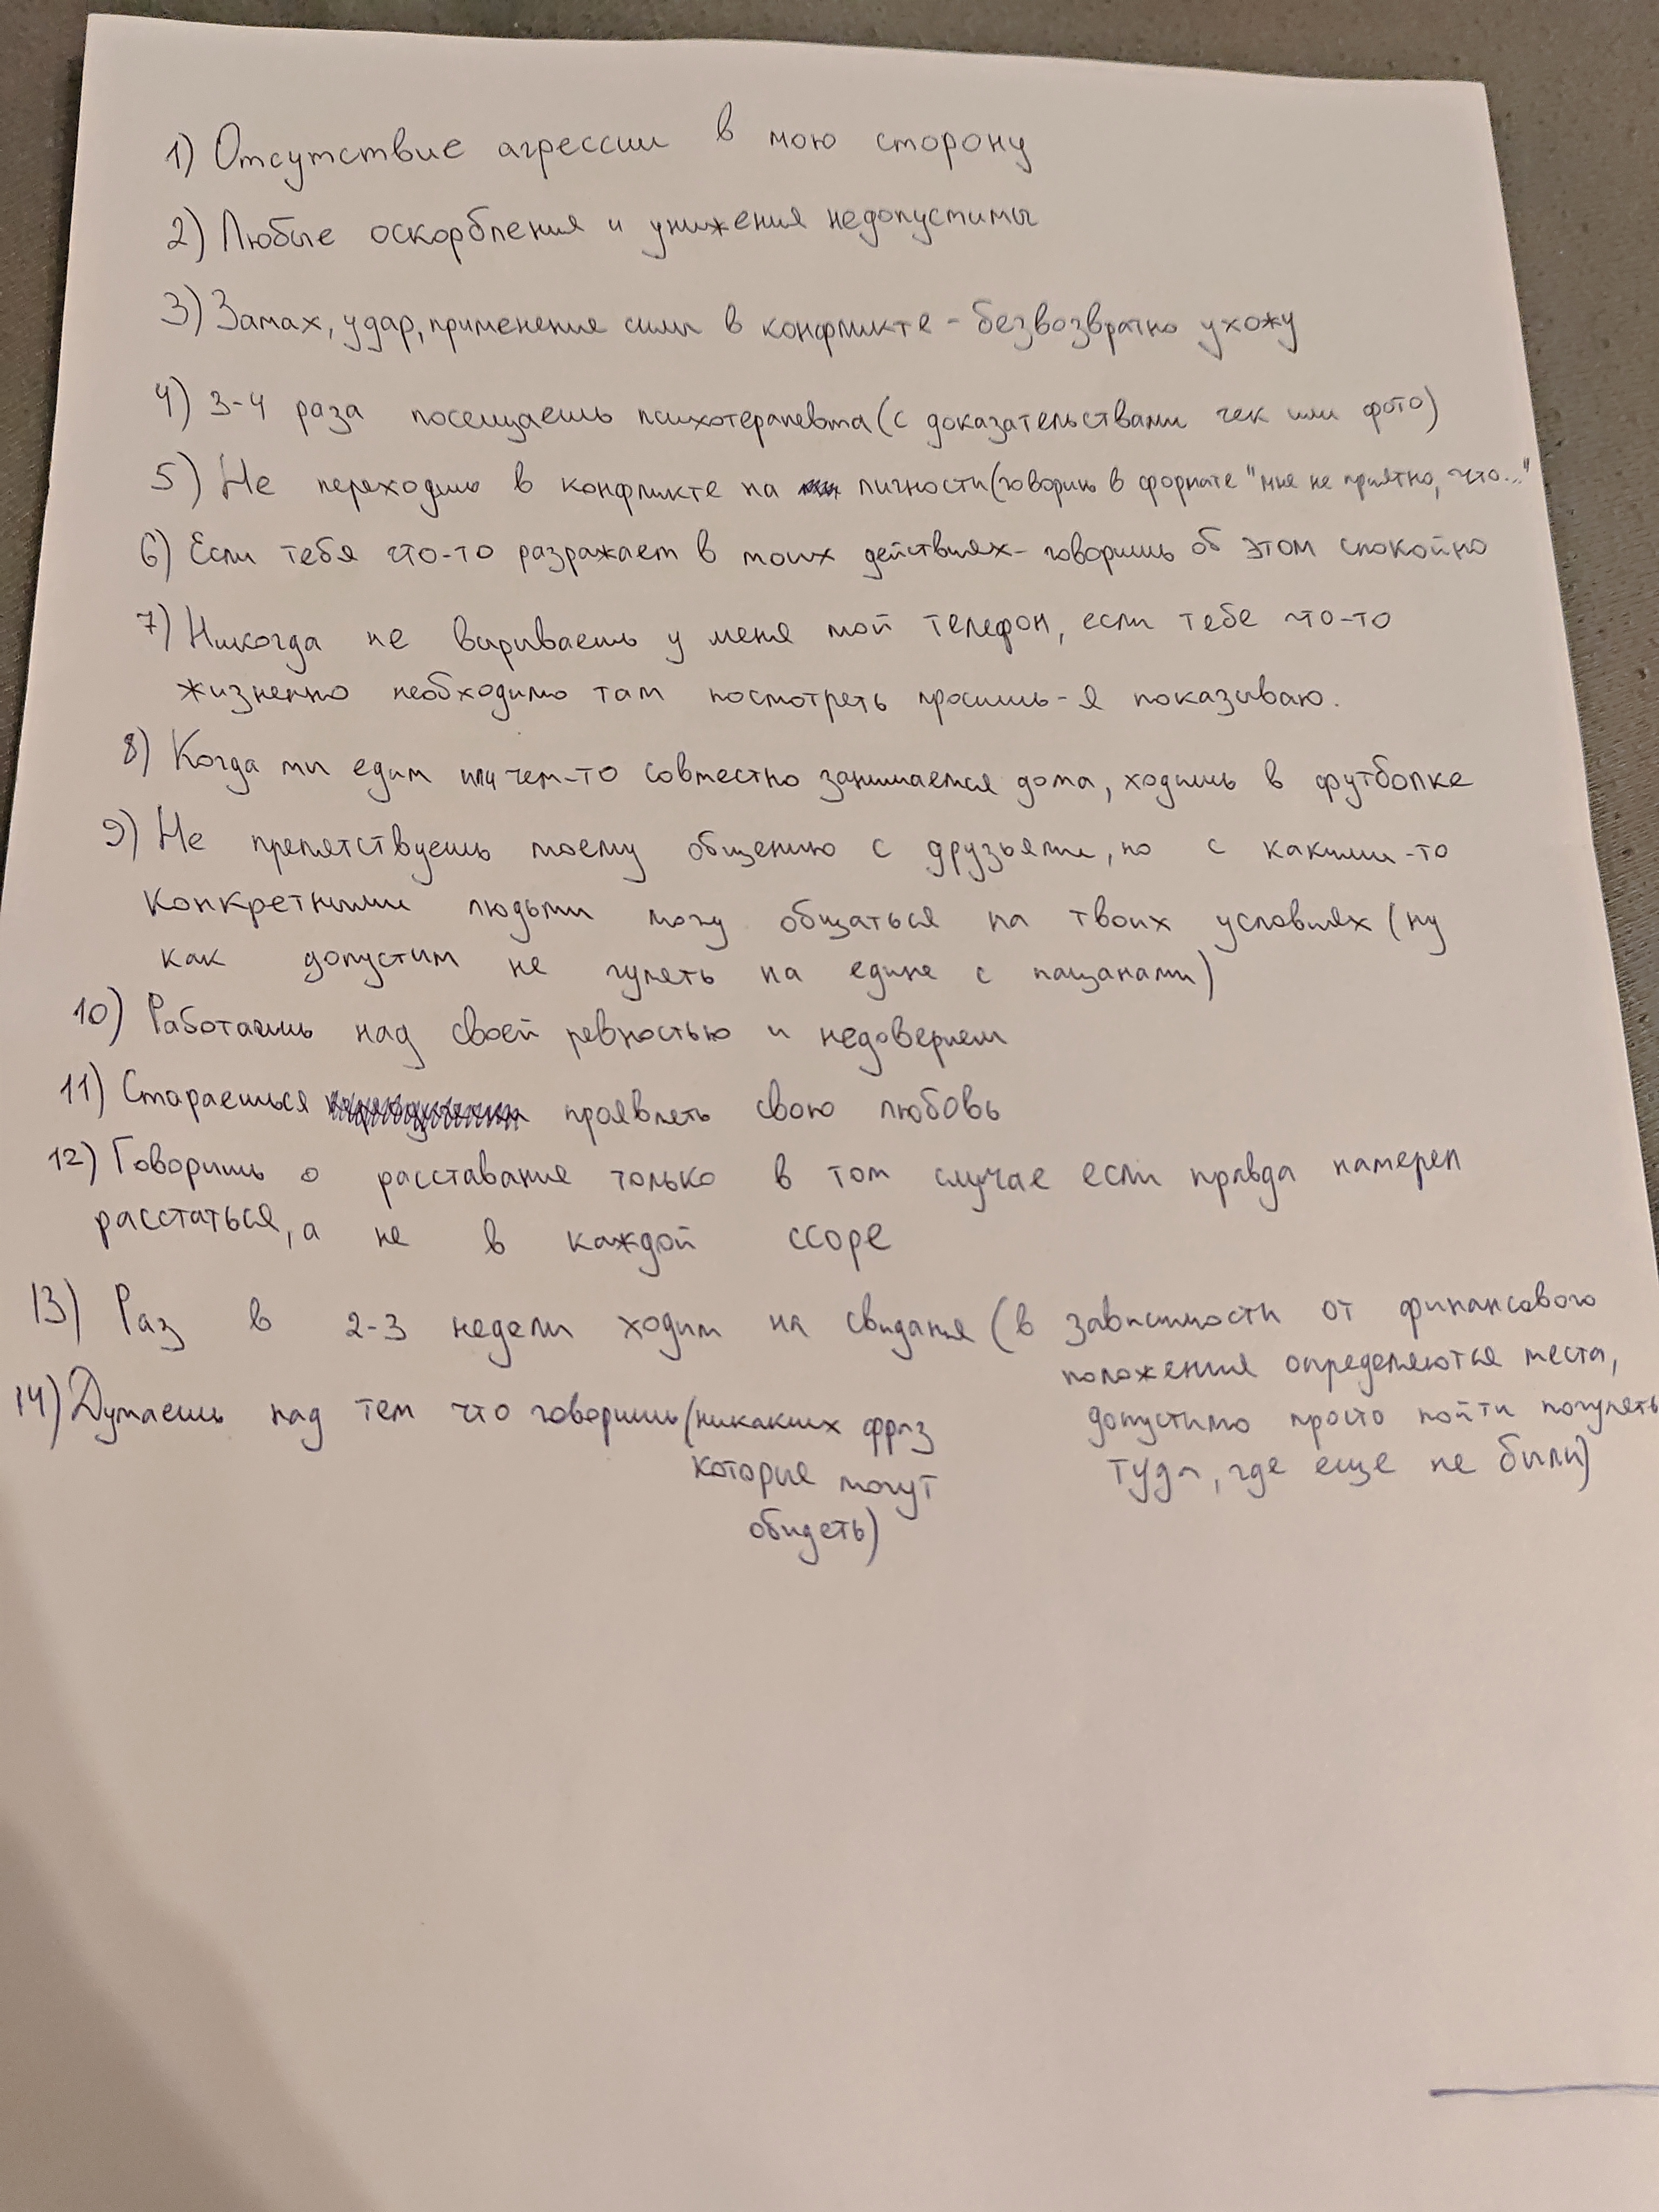 1) Отсутствие агрессии в мою сторону
2) Любые оскорбления и унижения недопустимы
3) Замах, удар, применение силы в конфликте - безвозвратно ухожу
4) 3-4 раза посещаешь психотерапевта (с доказательствами чек или фото)
5) Не переходишь в конфликте на личности (говоришь в формате "мне не приятно, что..."
6) Если тебя что-то разражает в моих действиях - говоришь об этом спокойно
7) Никогда не вырываешь у меня мой телефон, если тебе что-то
жизненно необходимо там посмотреть просишь - я показываю.
8) Когда мы едим или чем-то совместно занимаемся дома, ходишь в футболке
9) Не препятствуешь моему общению с друзьями, но с какими-то
конкретными людьми могу общаться на твоих условиях (ну
как допустим не гулять на едине с пацанами)
10) Работаешь над своей ревностью и недоверием
11) Стараешься проявлять свою любовь
12) Говоришь о расставание только в том случае если правда намерен
расстаться, а не в каждой ссоре
13) Раз в 2-3 недели ходим на свидания (в зависимости от финансового
положения определяются места,
допустимо просто пойти погулять
туда, где еще не были)
14) Думаешь над тем что говоришь (никаких фраз
которые могут
обидеть)